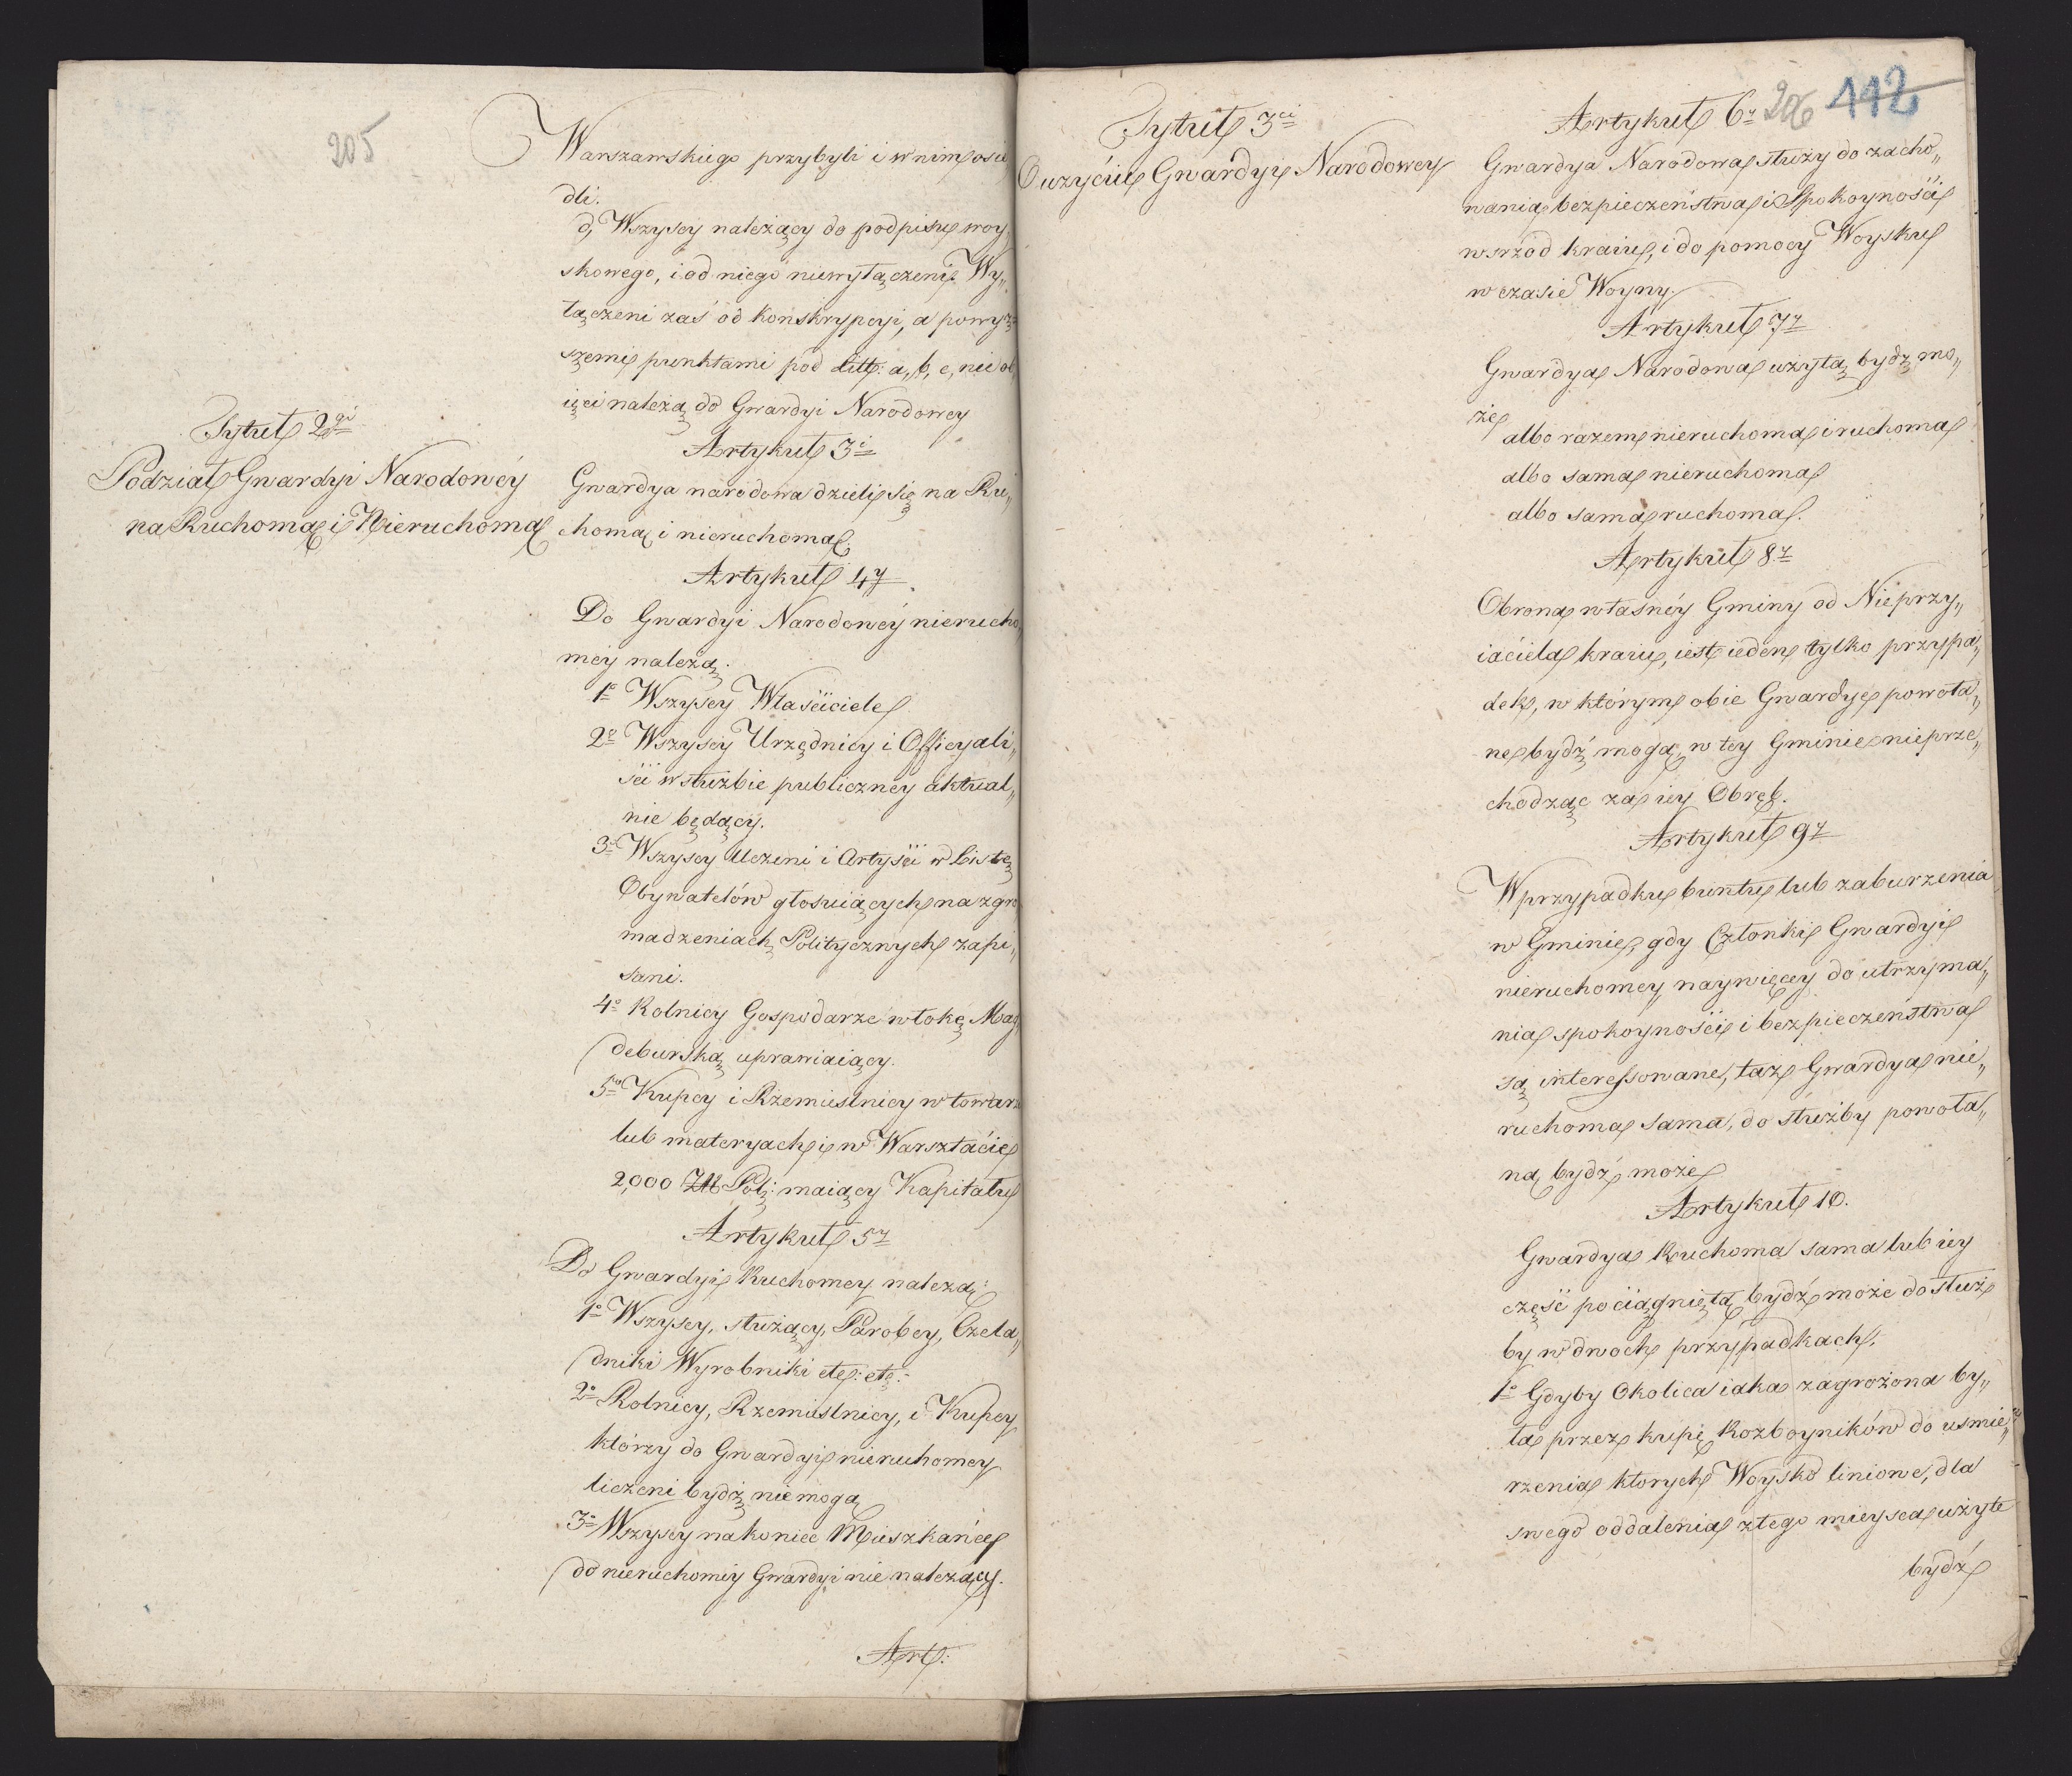 205
Warszawskiego przybyli i w nim osie
dli.
d, Wszyscy należący do podpisu woy„
skowego, i od niego niewyłączeni. Wy„
łączeni zaś od konskrypcyi, a powyż
szemi punktami pod Litt: a, b, c, nie ob
ięci należą do Gwardyi Narodowey
Tytuł 2gi
Podział Gwardyi Narodowéy
na Ruchomą i Nieruchomą
Artykuł 3i
Gwardya narodowa dzieli się na Ru„
chomą i nieruchomą.
Artykuł 4y
Do Gwardyi Narodowéy nierucho„
méy należą.
1o Wszyscy Właściciele
2o Wszyscy Urzędnicy i Officyali„
ści w służbie publicznéy aktual„
nie będący.
3o Wszyscy Uczeni i Artyści w Listę
Obywatelów głosuiących na zgro
madzeniach Politycznych zapi„
sani.
4o Rolnicy Gospodarze włokę Mag
deburską uprawiaiący.
5o Kupcy i Rzemieslnicy w towarz
lub materyach i w Warsztacie
2,000 Zll Pol: maiący Kapitału
Artykuł 5y
Do Gwardyi Ruchomey należą:
1o Wszyscy, służący, Parobcy, Czela„
dniki Wyrobniki etc: etc:
2o Rolnicy, Rzemieslnicy, i Kupcy
którzy do Gwardyi nieruchomey
liczeni bydź niemogą
3o Wszyscy nakoniec Mieszkańce
do nieruchoméy Gwardyi nie należący.
Art:
206 112
Tytuł 3ci
O użyciu Gwardyi Narodowey
Artykuł 6y
Gwardya Narodowa służy do zacho„
wania bezpieczeństwa i Spokoyności
wsrzód kraiu, i do pomocy Woysku
w czasie Woyny.
Artykuł 7y
Gwardya Narodowa użytą bydź mo„
że
albo razem nieruchoma i ruchoma
albo sama nieruchoma
albo sama ruchoma.
Artykuł 8y
Obrona własnéy Gminy od Nieprzy„
iaciela kraiu, iest ieden tylko przypa„
dek, w którym obie Gwardye powoła„
ne bydź mogą, w tey Gminie nieprze„
chodząc za iey Obręb.
Artykuł 9y
W przypadku buntu lub zaburzenia
w Gminie, gdy Członki Gwardyi
nieruchomey naywięcey do utrzyma„
nia spokoyności i bezpieczeństwa
są interessowane, taż Gwardya nie„
ruchoma sama, do służby powoła„
ną bydź może
Artykuł 10.
Gwardya Ruchoma sama lub iey
część pociągniętą bydź może do służ
by w dwoch przypadkach,
1o Gdyby Okolica iaka zagrożona by„
ła przez kupę Rozboyników do usmie„
rzenia ktorych Woysko liniowe, dla
swego oddalenia z tego mieysca użyte
bydź